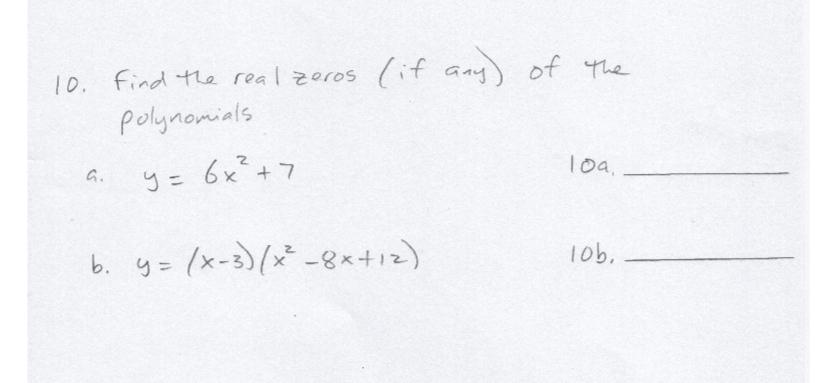 10. Find the real zeros (if any) of the
polynomials
a. y = 6x² + 7 10a.
b. y = (x-3)(x² - 8x + 12) 10b.